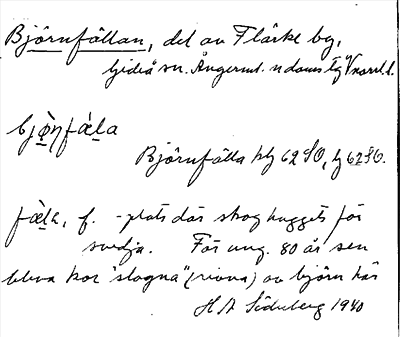 Björnfällan, del av Flärke by,
Gideå sn. Ångerml. n doms tg Vnorrl. l.
bjø̀ṇfæ̀la
Björnfälla hly 62 SO, ly 62 SO.
fæ̀la, f. - plats där skog huggets för
svedja. För ung. 80 år sen
bleva kor "slagna" (rivna) av björn här
H A Söderberg 1940